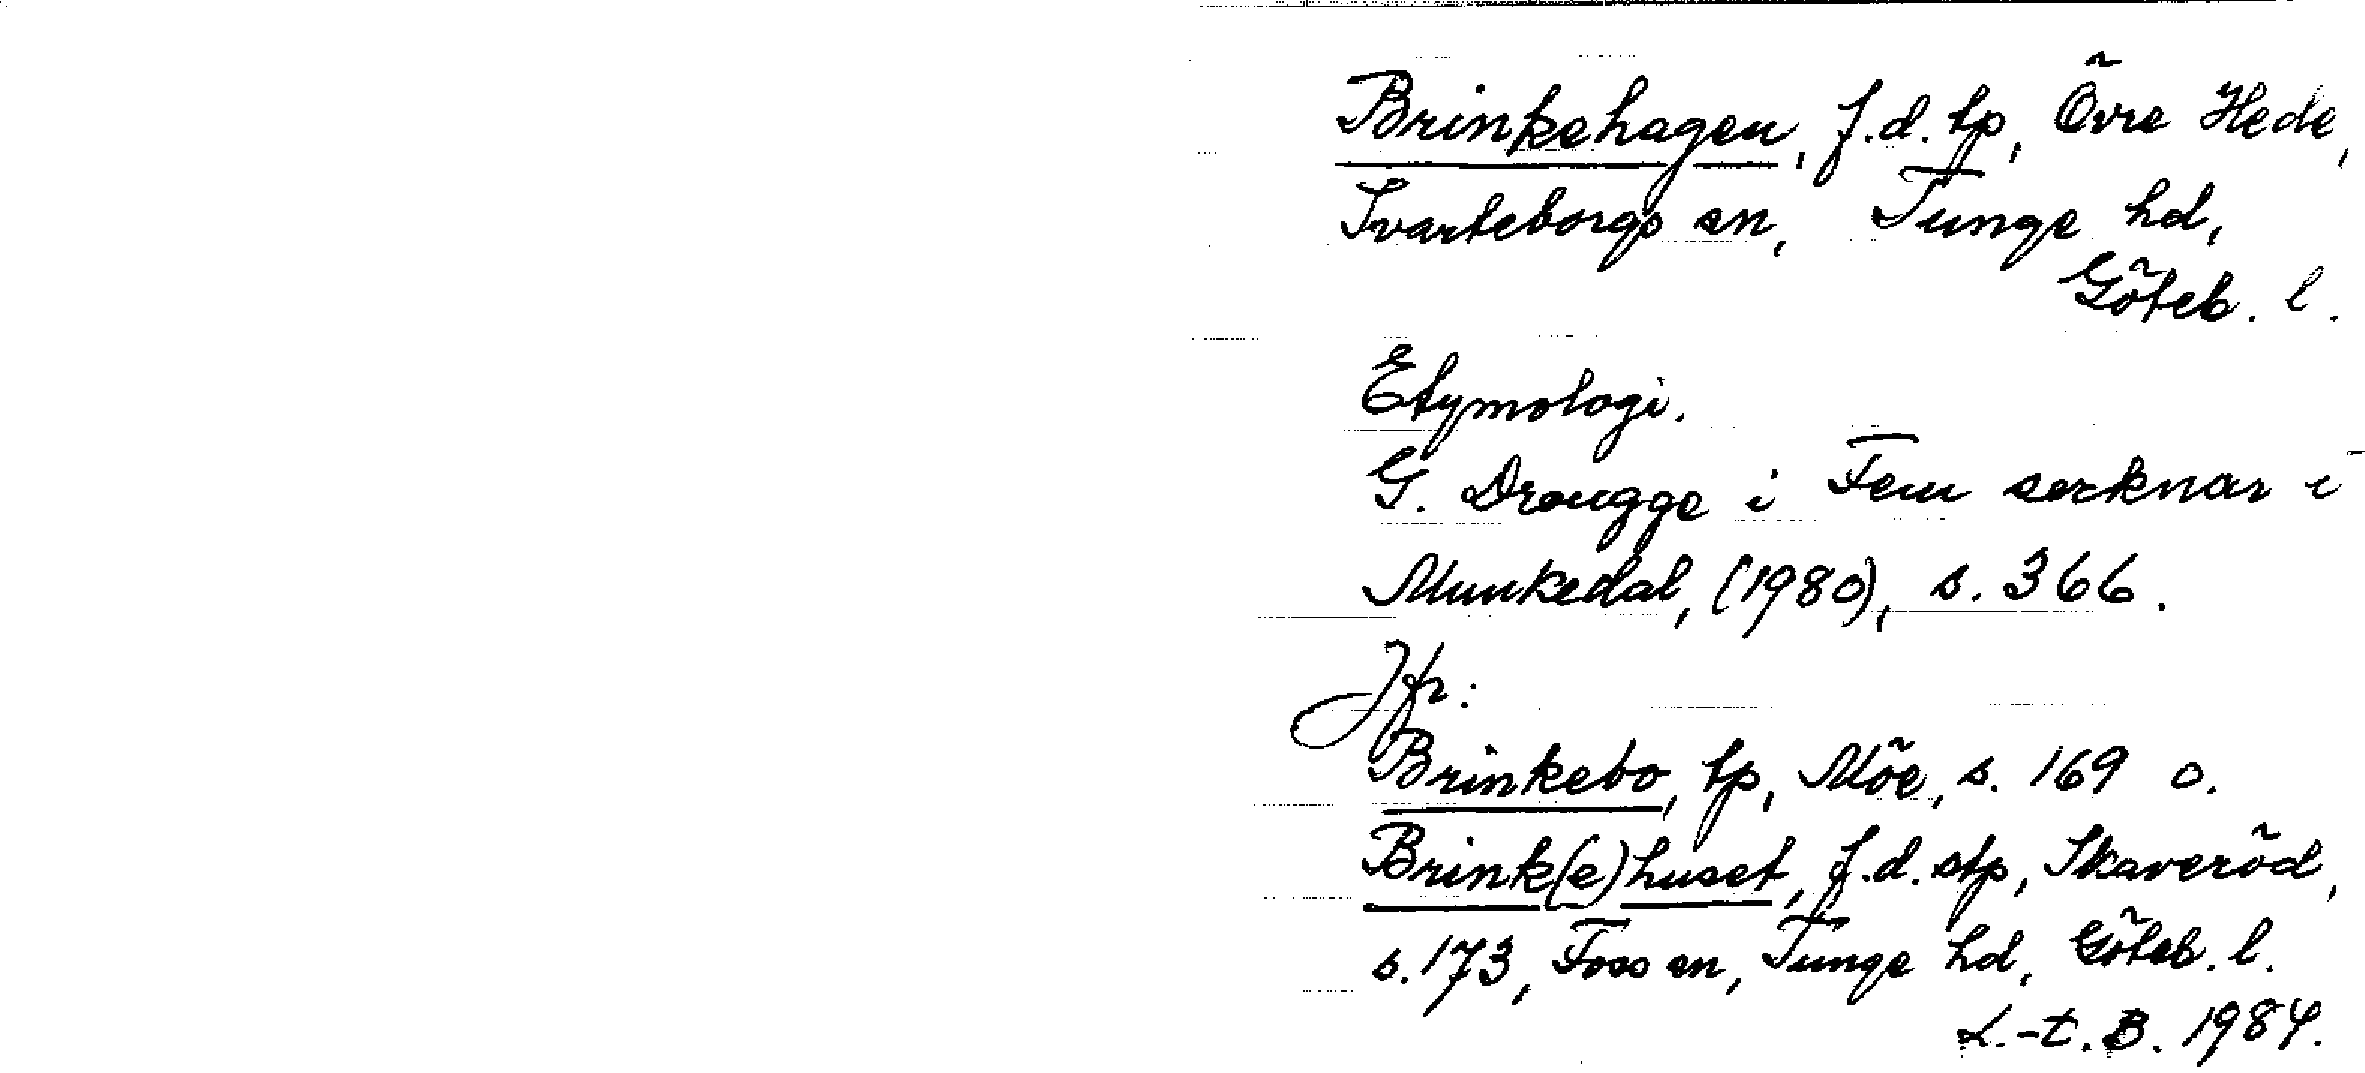 Brinkehagen, f.d. tp, Övre Hede,
Svarteborgs sn, Tunge hd,
Göteb. l.
Etymologi.
G. Drougge i Fem socknar i
Munkedal, (1980), s. 366.
Jfr:
Brinkebo, tp, Möe, s. 169 o.
Brink(e)huset, f.d. stp, Skaveröd,
s. 173, Foss sn, Tunge hd, Göteb. l.
L.-t. B. 1984.